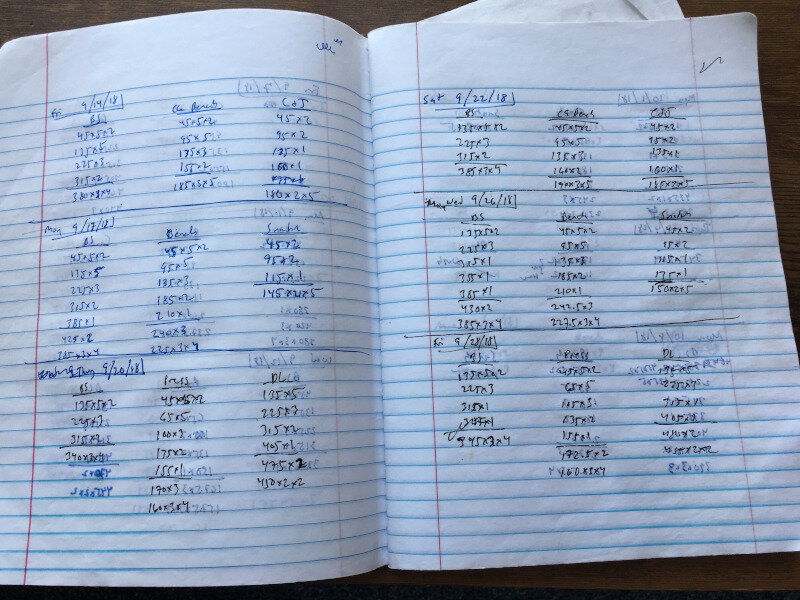 Fri 9/14/18
BS CG Bench C&J
45x5x2 45x5x2 45x2
135x5 95x5 95x2
225x3 135x3 135x1
315x2 155x2 160x1
380x3x4 185x3x5
180x2x5
Mon 9/17/18
BS Bench Snatch
45x5x2 45x5x2 45x2
135x5 95x5 95x2
225x3 135x3 115x1
315x2 185x2 145x2x5
385x1 210x1
425x2 240x3
385x3x4 225x3x4
Thu 9/20/18
BS Press DL
135x5x2 45x5x2 135x5
225x3 65x5 225x3
315x2 100x3 315x2
340x3x4 135x2 405x1
155x1 475x2
170x3 430x2x2
160x3x4
Sat 9/22/18
BS CG Bench C&J
135x5x2 45x5x2 45x2
225x3 95x5 95x2
315x2 135x3 135x1
385x3x4 160x2 160x1
190x3x5 185x2x5
Wed 9/26/18
BS Bench Snatch
135x5x2 45x5x2 45x2
225x3 95x5 95x2
315x1 135x3 115x1
355x1 185x2 135x1
385x1 210x1 150x2x5
430x2 242.5x3
385x3x4 227.5x3x4
Fri 9/28/18
BS Press DL
135x5x2 45x5x2 135x5
225x3 65x5 225x3
315x1 105x3 315x2
345x3x4 135x2 405x1
155x1
172.5x2